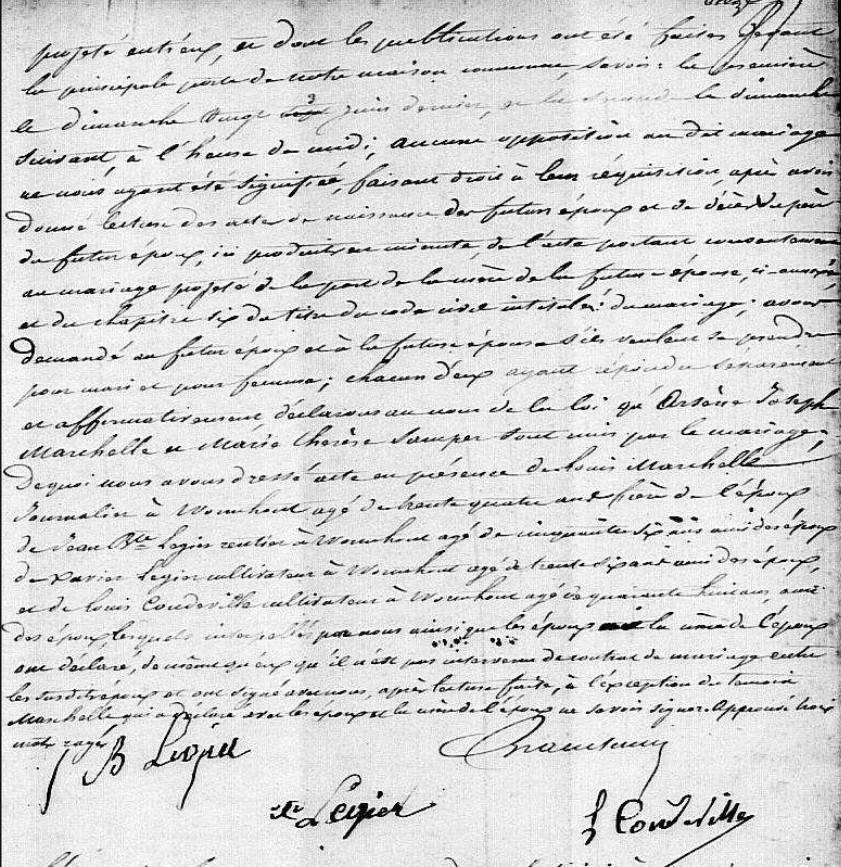 projeté entr'eux, et dont les publications ont été faites devant
la principale porte de notre maison commune, savoir: la première
le dimanche vingt juin dernier, et la seconde le dimanche
suivant, à l'heure de midi; aucune opposition au dit mariage
ne nous ayant été signifiée, faisant droit à leur réquisition, après avoir
donné lecture des actes de naissance des futurs époux et de décès du père
du futur époux, ici produits en minute, de l'acte portant consentement
au mariage projeté de la part de la mère de la future épouse, ci-annexé
et du chapitre six du titre du code civil intitulé: du mariage; avons
demandé au futur époux et à la future épouse s'ils veulent se prendre
pour mari et pour femme; chacun d'eux ayant répondu séparément
et affirmativement déclarons au nom de la loi qu'Arsène Joseph
Marchelle et Marie Thérèse Samper sont unis par le mariage;
De quoi nous avons dressé acte en présence de Louis Marchelle
Journalier à Wormhout agé de trente quatre ans frère de l'époux
de Jean Bte Legier rentier à Wormhout agé de cinquante six ans ami des époux
de Xavier Legier cultivateur à Wormhout agé de trente six ans ami des époux,
et de Louis Coudeville cultivateur à Wormhout agé de quarante huit ans, ami
des époux, lesquels interpellés par nous ainsi que les époux la mère de l'époux
ont déclaré, de même qu'eux qu'il n'est pas intervenu de contrat de mariage entre
les susdits époux et ont signé avec nous, après lecture faite, à l'exception du témoin
Marchelle qui a déclaré avec les époux et la mère de l'époux ne savoir signer. Approuvé trois
mots rayés
JB Legier
Xr Legier
L Coudeville